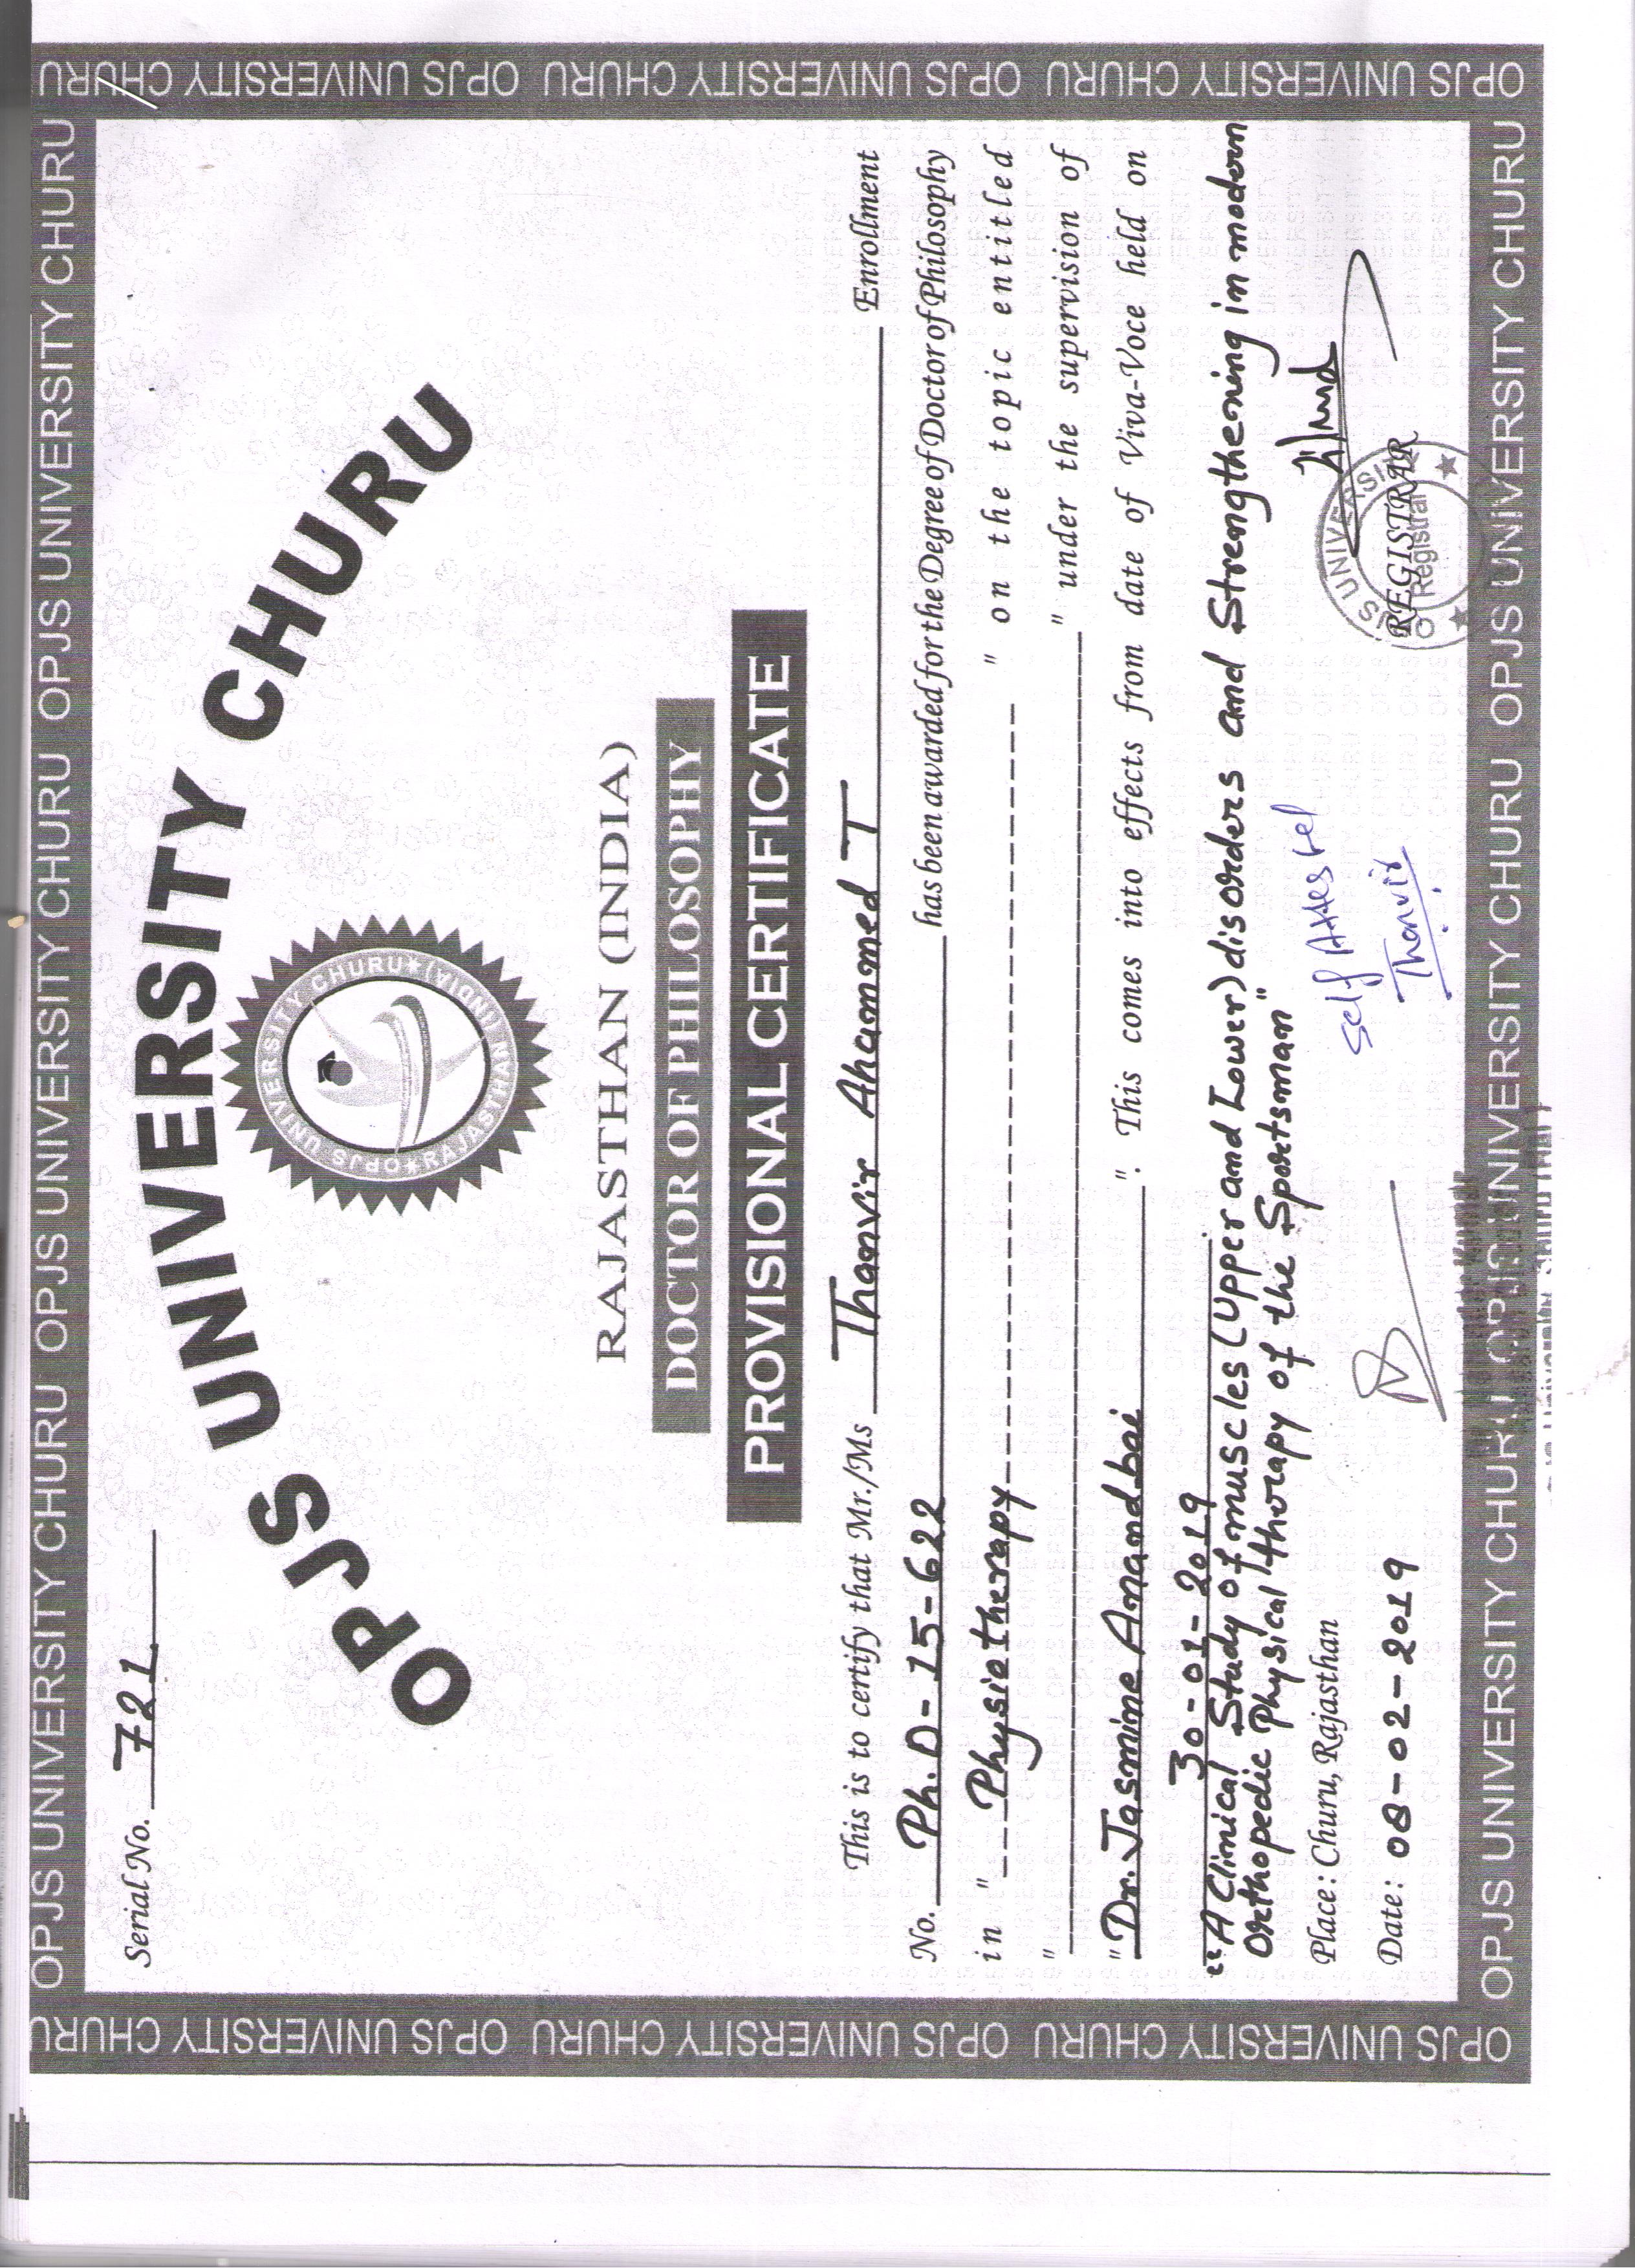 OPJS UNIVERSITY CHURU OPJS UNIVERSITY CHURU OPJS UNIVERSITY CHURU
Serial No. 721
OPJS UNIVERSITY CHURU
OPJS UNIVERSITY CHURU★(INDIA) RAJASTHAN★
RAJASTHAN (INDIA)
DOCTOR OF PHILOSOPHY
PROVISIONAL CERTIFICATE
This is to certify that Mr./Ms Thanvir Ahammed T Enrollment
No. Ph.D-15-622 has been awarded for the Degree of Doctor of Philosophy
in " Physiotherapy " on the topic entitled
" " under the supervision of
"Dr. Jasmine Anandbai ". This comes into effects from date of Viva-Voce held on
30-01-2019
"A Clinical Study of muscles (Upper and Lower) disorders and Strengthening in modern
Orthopedic Physical therapy of the Sportsman"
Place: Churu, Rajasthan
Self Attested
Thanvir
Date: 08-02-2019
OPJS UNIVERSITY
Registrar
REGISTRAR
OPJS UNIVERSITY CHURU OPJS UNIVERSITY CHURU OPJS UNIVERSITY CHURU
OPJS UNIVERSITY CHURU OPJS UNIVERSITY CHURU OPJS UNIVERSITY CHURU
OPJS UNIVERSITY CHURU OPJS UNIVERSITY CHURU OPJS UNIVERSITY CHURU